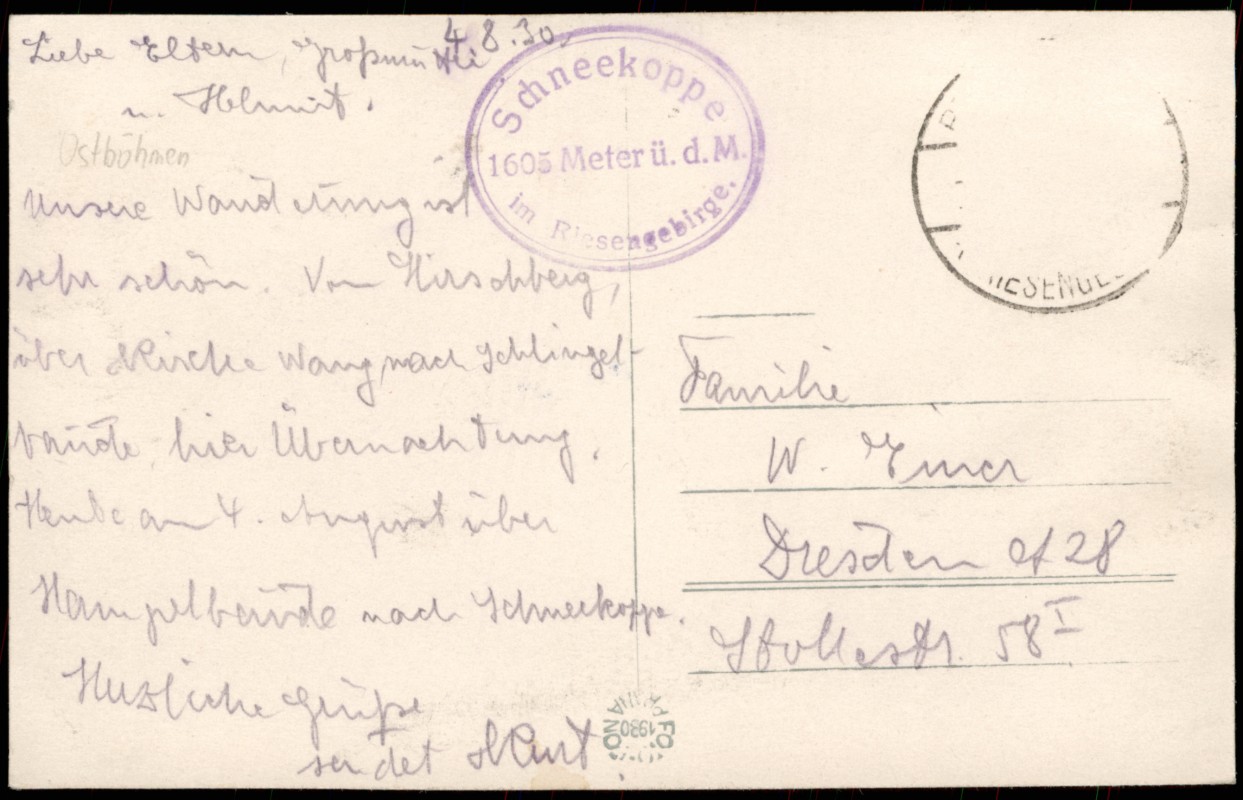 4.8.30.
Liebe Eltern, Großmutti
u. Helmut.
Ostböhmen
Unsere Wanderung ist
sehr schön. Von Hirschberg,
über Kirche Wang nach Schlingel-
baude, hier Übernachtung.
Heute am 4. August über
Hampelbaude nach Schneekoppe.
Herzliche Grüße
sendet Kurt.
Schneekoppe
1605 Meter ü. d. M.
im Riesengebirge.
Familie
W.
Dresden A 28
Stollestr. 58 I
1930